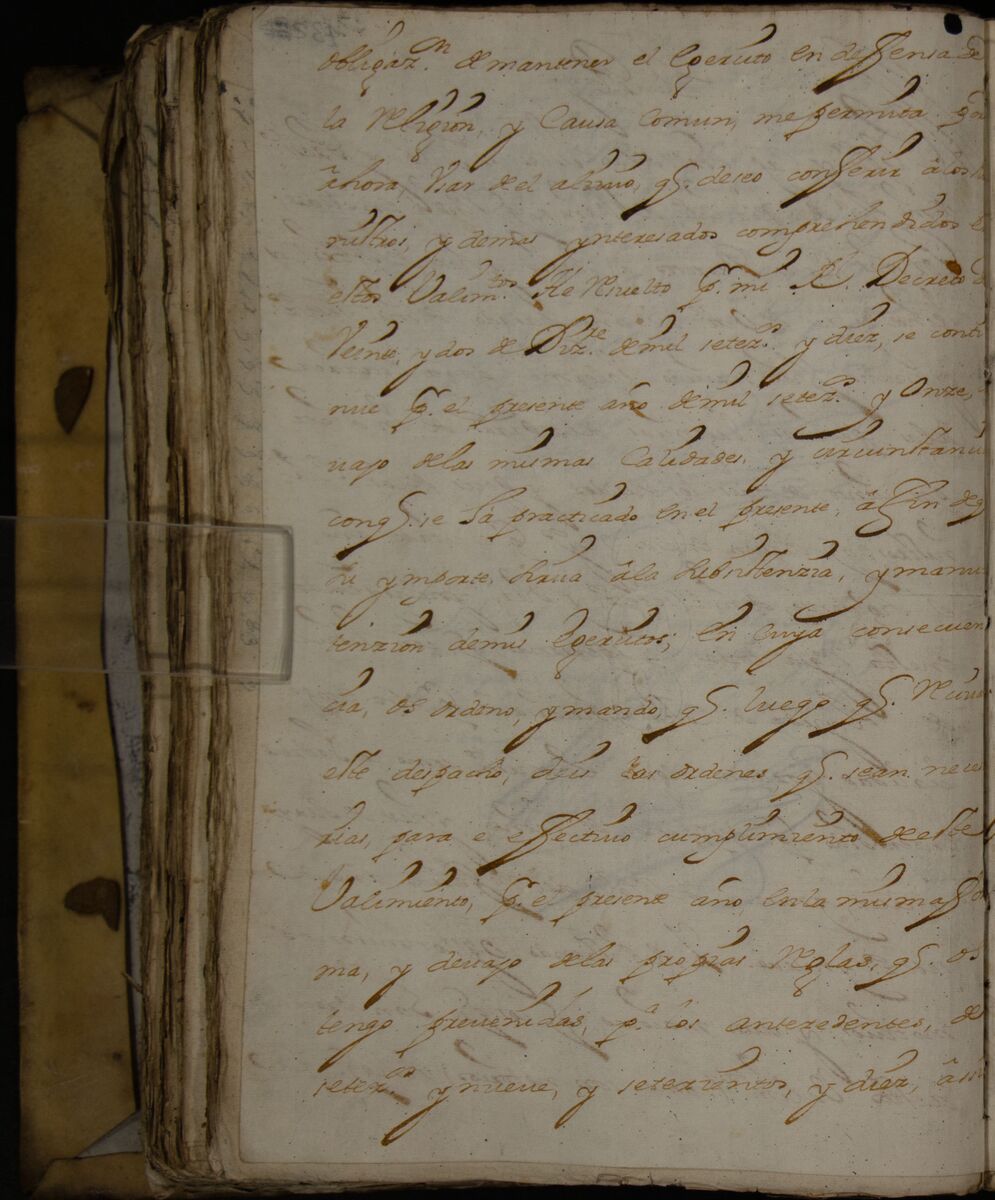 obligaz.on de mantener el exercito en deffensa de
la Religion, y Causa Comun, me permita por
ahora, Usar del alivio, q.e deseo conferir â los
nistros, y demas ynteresados comprehendidos e
estos Valim.tos He resuelto p.r mi R.l Decreto d
Veinte, y dos de Diz.re de mil setez.os y diez, se conti
nue p.r el presente año de mil setez.os y Onze,
vajo de las mismas Calidades, y circunstanci
con q.e se ha practicado en el presente, â fin de q
su ymporte, sirva â la subsistenzia, y manu
tenzion de mis exercitos; En Cuya consecuen
cia, os ordeno, y mando, q.e luego q.e Reciv
este despacho, deis las ordenes, q.e sean neces
rias, para e effectivo cumplimiento de este
Valimiento, p.r el presente año, en la misma fo
ma, y devajo de las propias Reglas, q.e os
tengo prevenidas, p.a los antezedentes, de
setez.os y nueve, y setezientos, y diez, â si